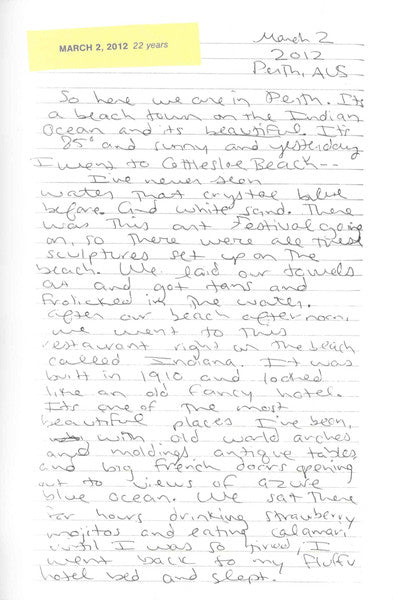 MARCH 2, 2012 22 years
March 2
2012
Perth, AUS
So here we are in Perth. Its
a beach town on the Indian
Ocean and its beautiful. It's
85° and sunny and yesterday
I went to Cottesloe Beach--
I've never seen
water that crystal blue
before. And white sand. There
was this art festival going
on, so there were all these
sculptures set up on the
beach. We laid our towels
out and got tans and
frolicked in the water.
After our beach afternoon,
we went to this
restaurant right on the beach
called Indiana. It was
built in 1910 and looked
like an old fancy hotel.
Its one of the most
beautiful places I've been,
with old world arches
and moldings, antique tables
and big French doors opening
out to views of azure
blue ocean. We sat there
for hours drinking strawberry
mojitos and eating calamari
until I was so tired, I
went back to my fluffy
hotel bed and slept.